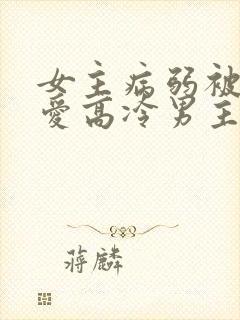 女主病弱被
爱高冷男主
蒋麟